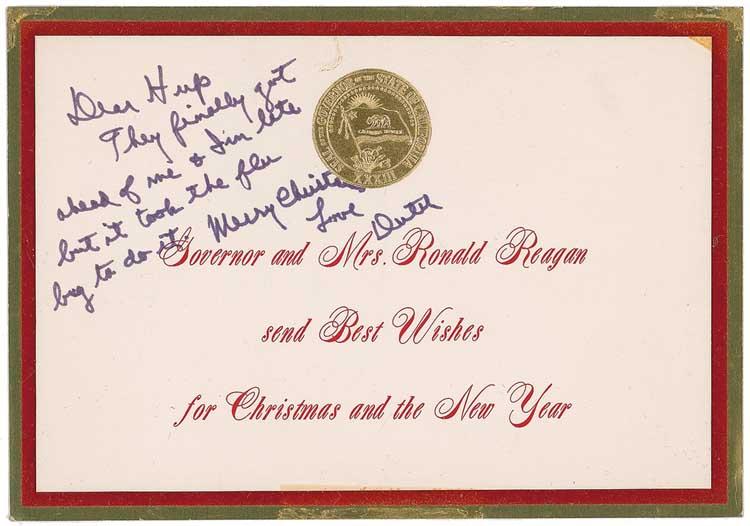 Dear Hup
They finally got
ahead of me & I'm late
but it took the flu
bug to do it. Merry Christmas
Love Dutch
SEAL OF THE GOVERNOR OF THE STATE OF CALIFORNIA
XXXIII
Governor and Mrs. Ronald Reagan
send Best Wishes
for Christmas and the New Year